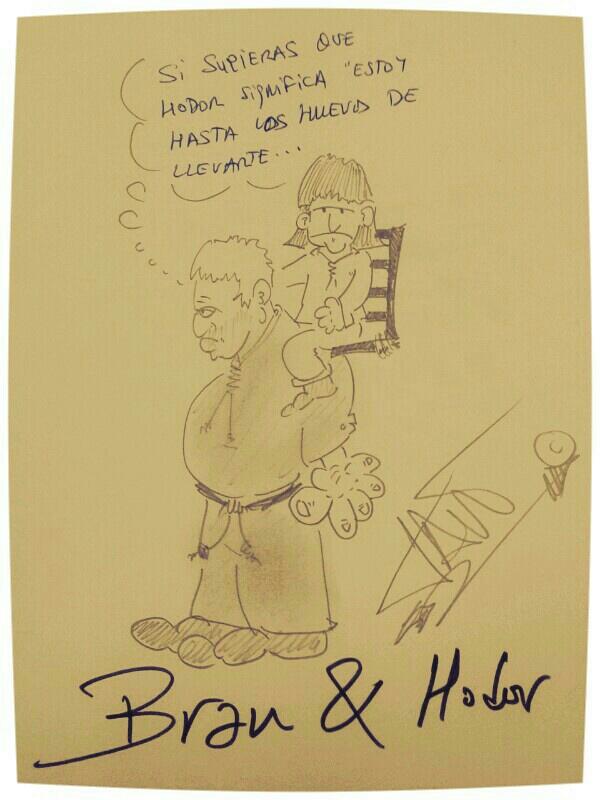 SI SUPIERAS QUE
HODOR SIGNIFICA "ESTOY
HASTA LOS HUEVOS DE
LLEVARTE...
Bran & Hodor